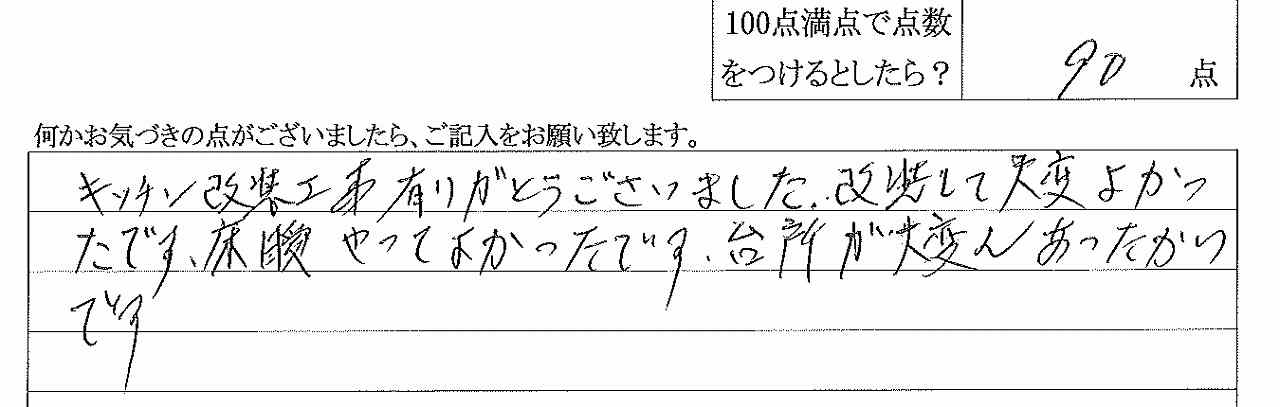 100点満点で点数
をつけるとしたら？ 90 点
何かお気づきの点がございましたら、ご記入をお願い致します。
キッチン改装工事有りがとうございました、改装して大変よかっ
たです、床暖やってよかったです、台所が大変んあったかい
です